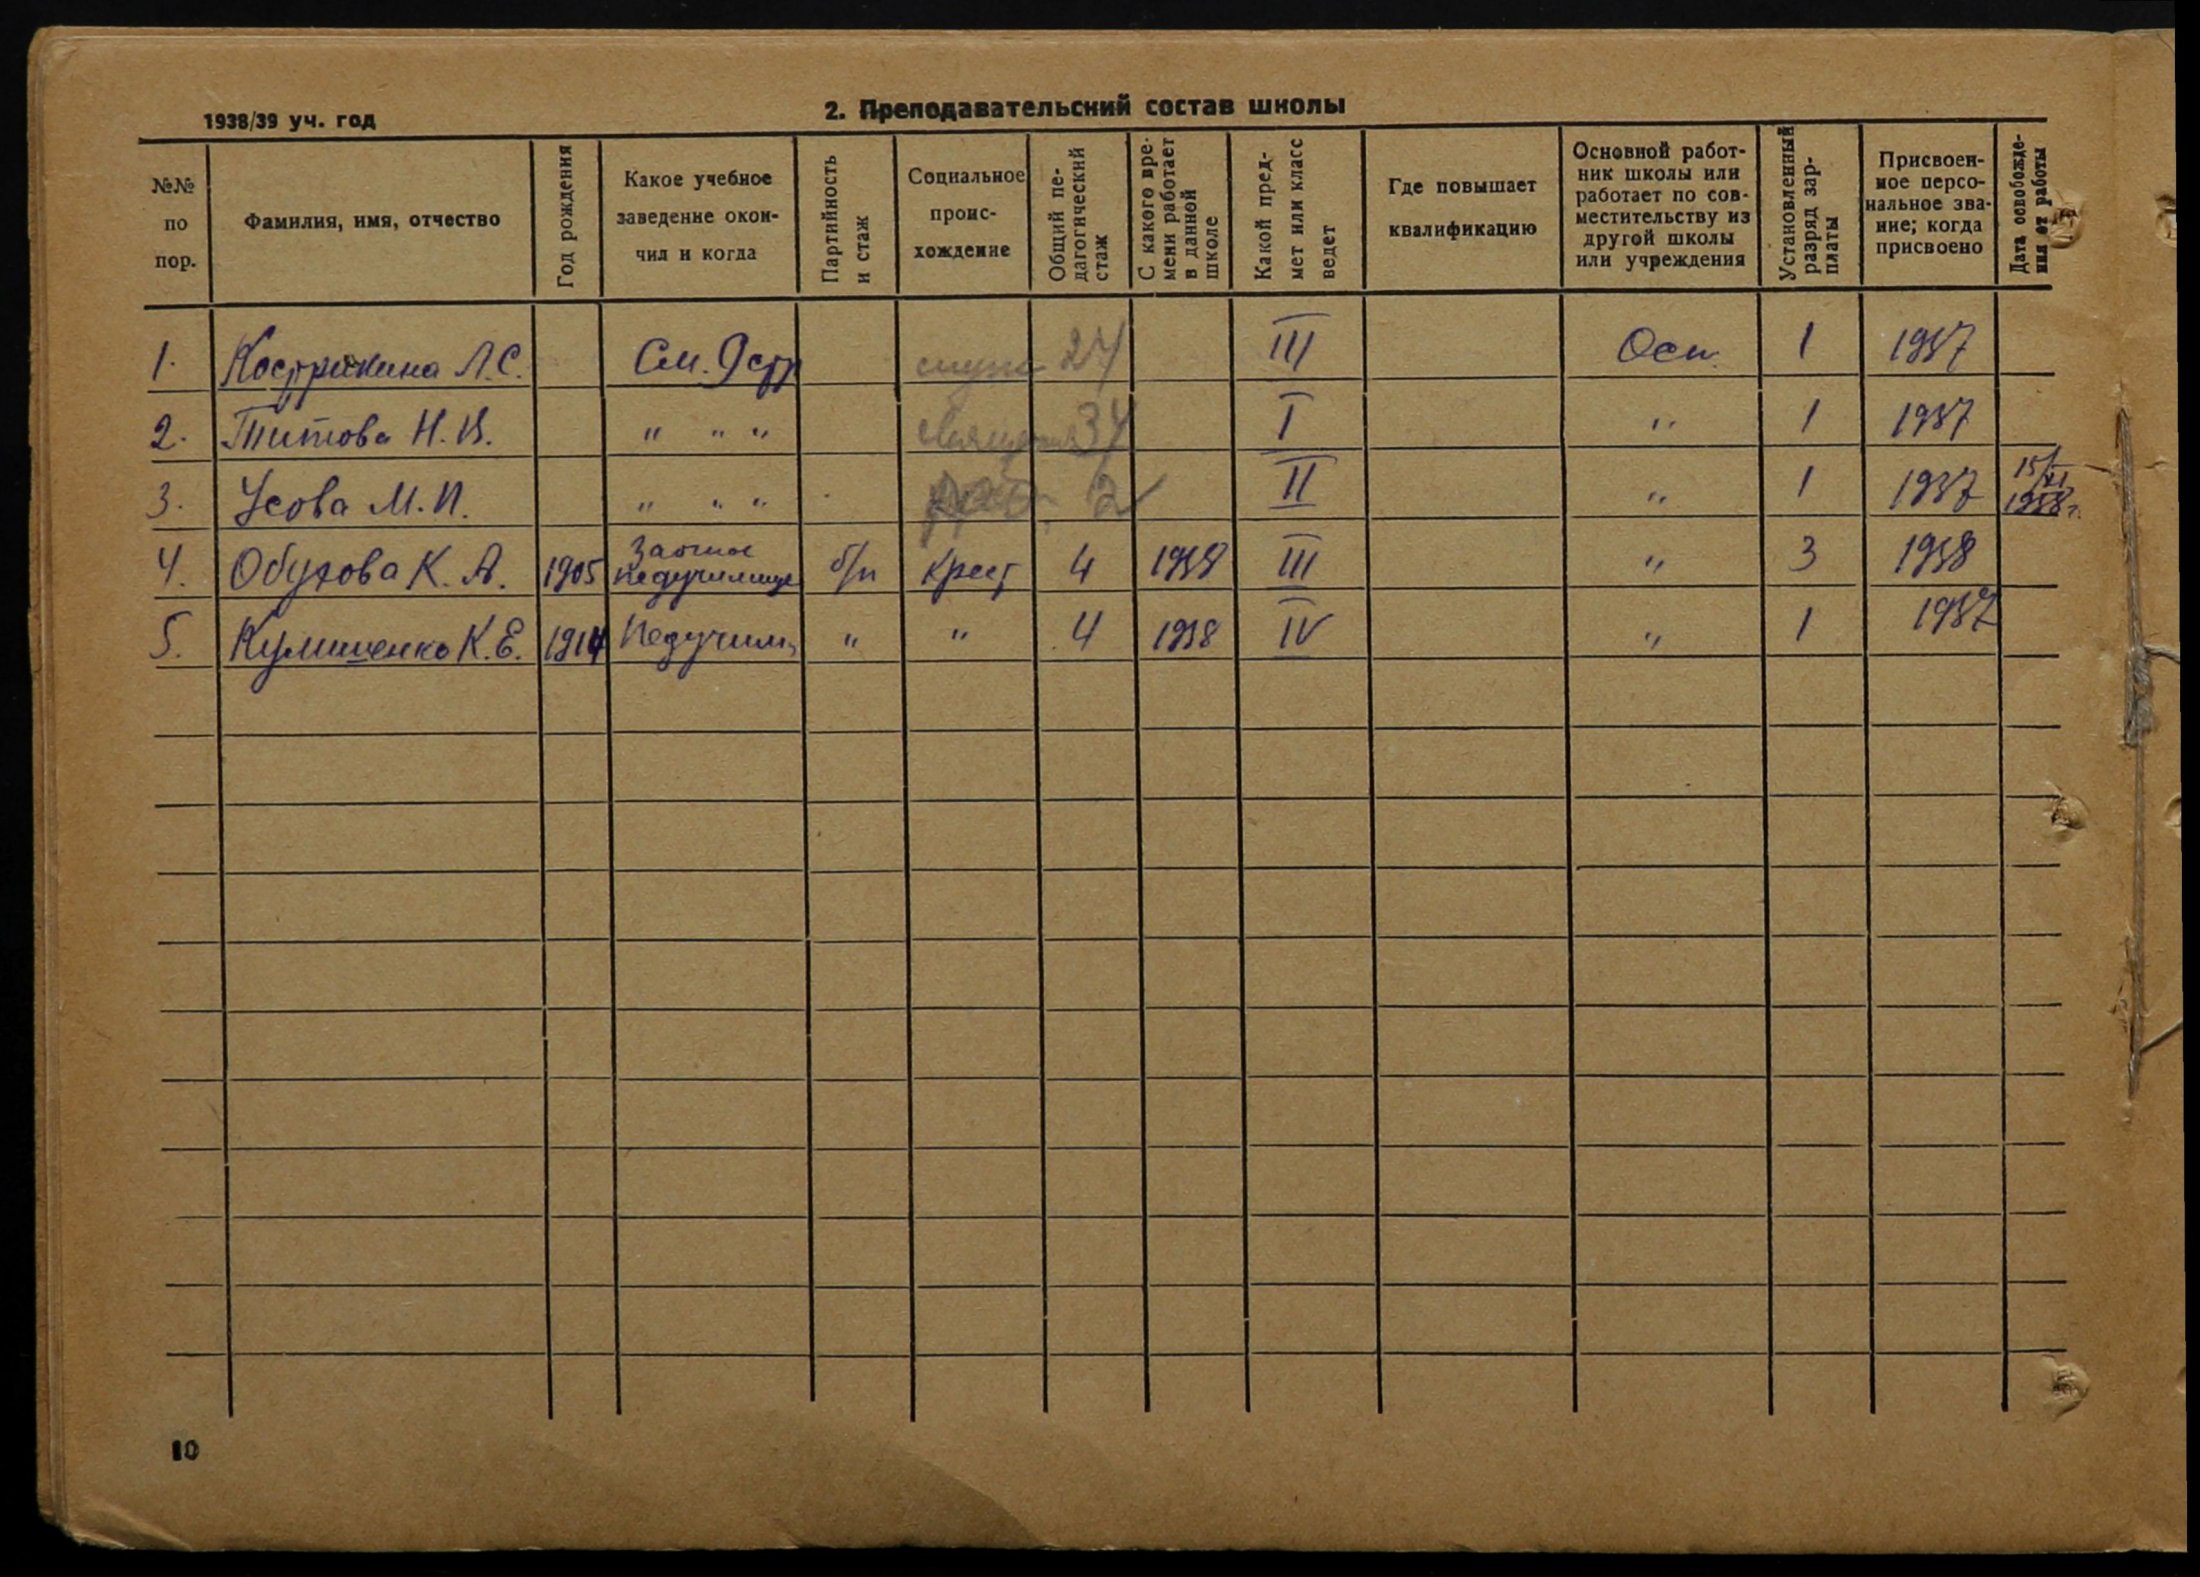 1938/39 уч. год
2. Преподавательский состав школы
№№ по пор.
Фамилия, имя, отчество
Год рождения
Какое учебное заведение окон-чил и когда
Партийность и стаж
Социальное проис-хождение
Общий пе-дагогический стаж
С какого вре-мени работает в данной школе
Какой пред-мет или класс ведет
Где повышает квалификацию
Основной работ-ник школы или работает по сов-местительству из другой школы или учреждения
Установленный разряд зар-платы
Присвоен-ное персо-нальное зва-ние; когда присвоено
Дата освобожде-ния от работы
1. Кострикина Л.С. См. 9 стр служ 27 III Осн. 1 1937
2. Титова Н.В. " " " 34 I " 1 1937
3. Усова М.П. " " " 2 II " 1 1937 15/XI 1938 г.
4. Обухова К.А. 1905 Заочное педучилище б/п Крест 4 1938 III " 3 1938
5. Кулишенко К.Е. 1914 Педучилищ " " 4 1938 IV " 1 1937
10